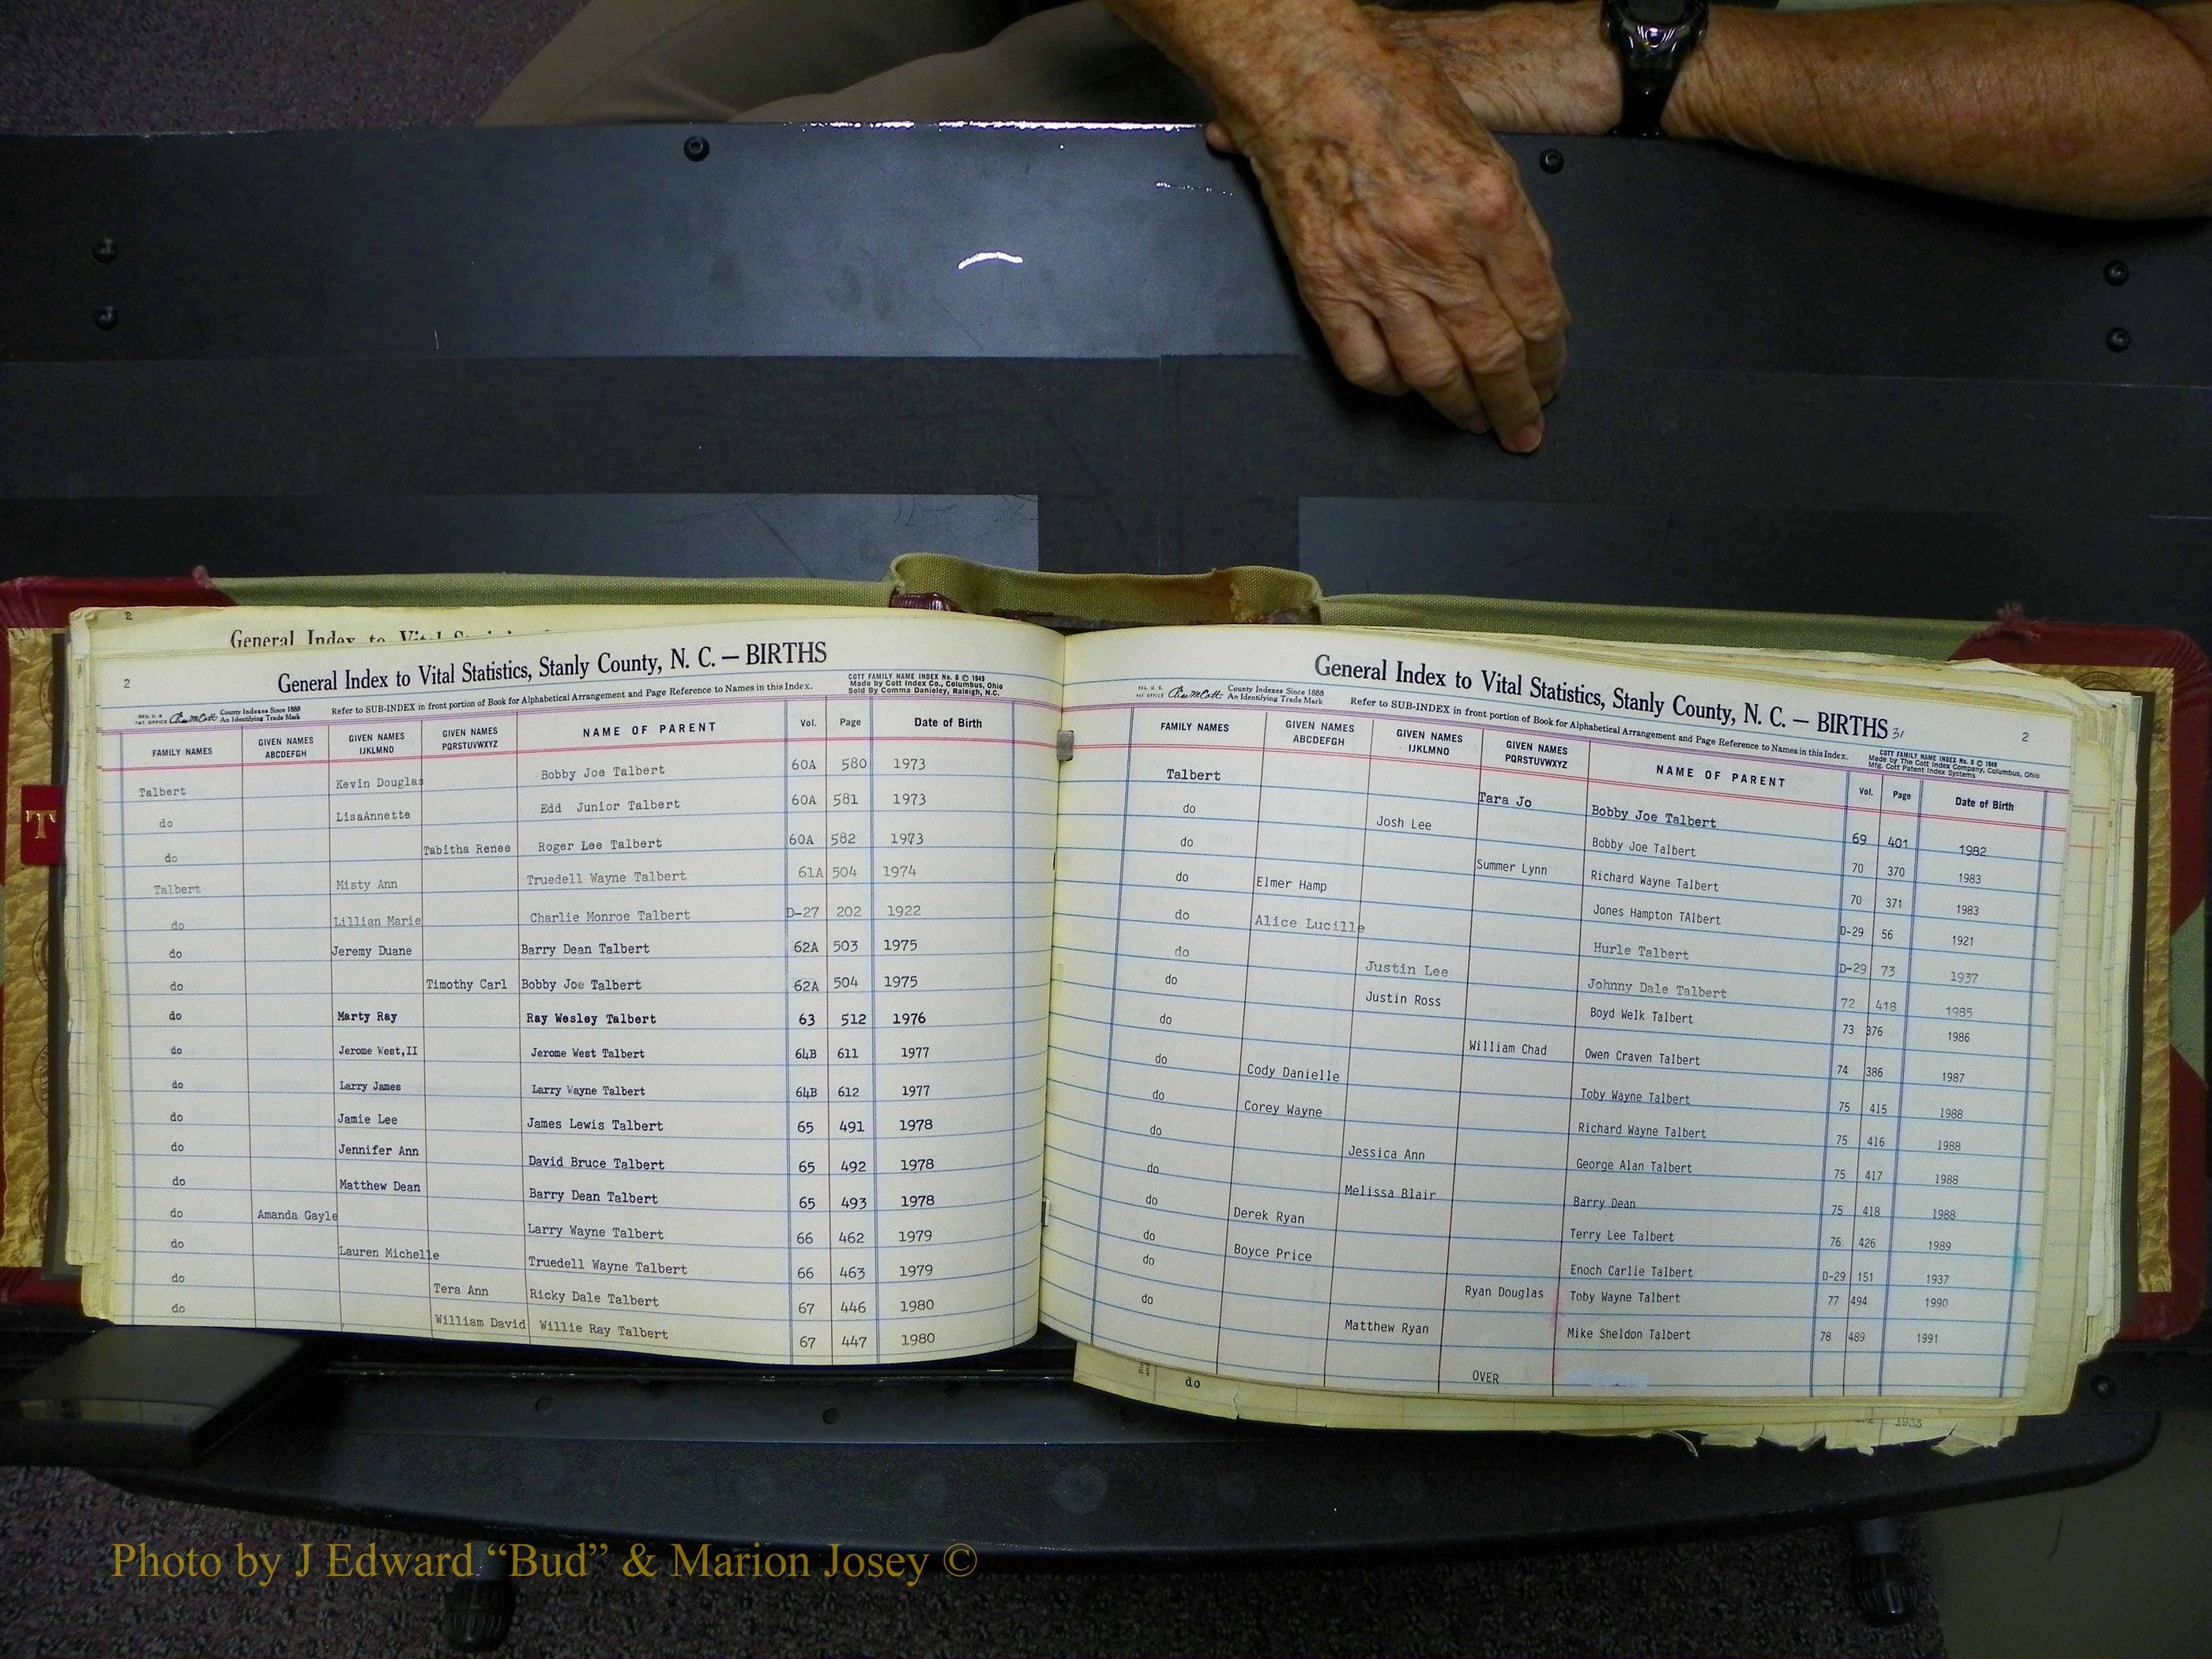 2
General Index to Vital Statistics, Stanly County, N. C. — BIRTHS
2
REG. U. S. PAT. OFFICE County Indexes Since 1888 An Identifying Trade Mark
Refer to SUB-INDEX in front portion of Book for Alphabetical Arrangement and Page Reference to Names in this Index.
COTT FAMILY NAME INDEX No. 8 © 1949
Made by Cott Index Co., Columbus, Ohio
Sold By Comma Danieley, Raleigh, N.C.
FAMILY NAMES GIVEN NAMES ABCDEFGH GIVEN NAMES IJKLMNO GIVEN NAMES PQRSTUVWXYZ NAME OF PARENT Vol. Page Date of Birth
Talbert Kevin Douglas Bobby Joe Talbert 60A 580 1973
do LisaAnnette Edd Junior Talbert 60A 581 1973
do Tabitha Renee Roger Lee Talbert 60A 582 1973
Talbert Misty Ann Truedell Wayne Talbert 61A 504 1974
do Lillian Marie Charlie Monroe Talbert D-27 202 1922
do Jeremy Duane Barry Dean Talbert 62A 503 1975
do Timothy Carl Bobby Joe Talbert 62A 504 1975
do Marty Ray Ray Wesley Talbert 63 512 1976
do Jerome West,II Jerome West Talbert 64B 611 1977
do Larry James Larry Wayne Talbert 64B 612 1977
do Jamie Lee James Lewis Talbert 65 491 1978
do Jennifer Ann David Bruce Talbert 65 492 1978
do Matthew Dean Barry Dean Talbert 65 493 1978
do Amanda Gayle Larry Wayne Talbert 66 462 1979
do Lauren Michelle Truedell Wayne Talbert 66 463 1979
do Tera Ann Ricky Dale Talbert 67 446 1980
do William David Willie Ray Talbert 67 447 1980
General Index to Vital Statistics, Stanly County, N. C. — BIRTHS 31
2
REG. U. S. PAT. OFFICE County Indexes Since 1888 An Identifying Trade Mark
Refer to SUB-INDEX in front portion of Book for Alphabetical Arrangement and Page Reference to Names in this Index.
COTT FAMILY NAME INDEX No. 8 © 1949
Made by The Cott Index Company, Columbus, Ohio
Mfg. Cott Patent Index Systems
FAMILY NAMES GIVEN NAMES ABCDEFGH GIVEN NAMES IJKLMNO GIVEN NAMES PQRSTUVWXYZ NAME OF PARENT Vol. Page Date of Birth
Talbert Tara Jo Bobby Joe Talbert 69 401 1982
do Josh Lee Bobby Joe Talbert 70 370 1983
do Summer Lynn Richard Wayne Talbert 70 371 1983
do Elmer Hamp Jones Hampton TAlbert D-29 56 1921
do Alice Lucille Hurle Talbert D-29 73 1937
do Justin Lee Johnny Dale Talbert 72 418 1985
do Justin Ross Boyd Welk Talbert 73 376 1986
do William Chad Owen Craven Talbert 74 386 1987
do Cody Danielle Toby Wayne Talbert 75 415 1988
do Corey Wayne Richard Wayne Talbert 75 416 1988
do Jessica Ann George Alan Talbert 75 417 1988
do Melissa Blair Barry Dean 75 418 1988
do Derek Ryan Terry Lee Talbert 76 426 1989
do Boyce Price Enoch Carlie Talbert D-29 151 1937
do Ryan Douglas Toby Wayne Talbert 77 494 1990
do Matthew Ryan Mike Sheldon Talbert 78 489 1991
OVER
do
1933
T
Photo by J Edward “Bud” & Marion Josey ©